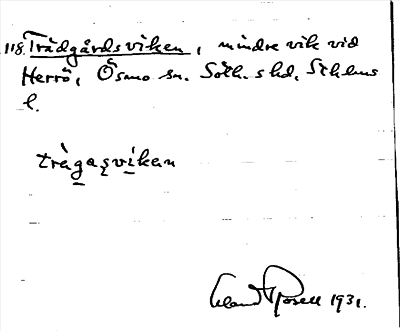 118. Trädgårdsviken, mindre vik vid
Herrö, Ösmo sn. Soth. shd, Sthlms
l.
tràgasvi̱kan
Erland Rosell 1931.